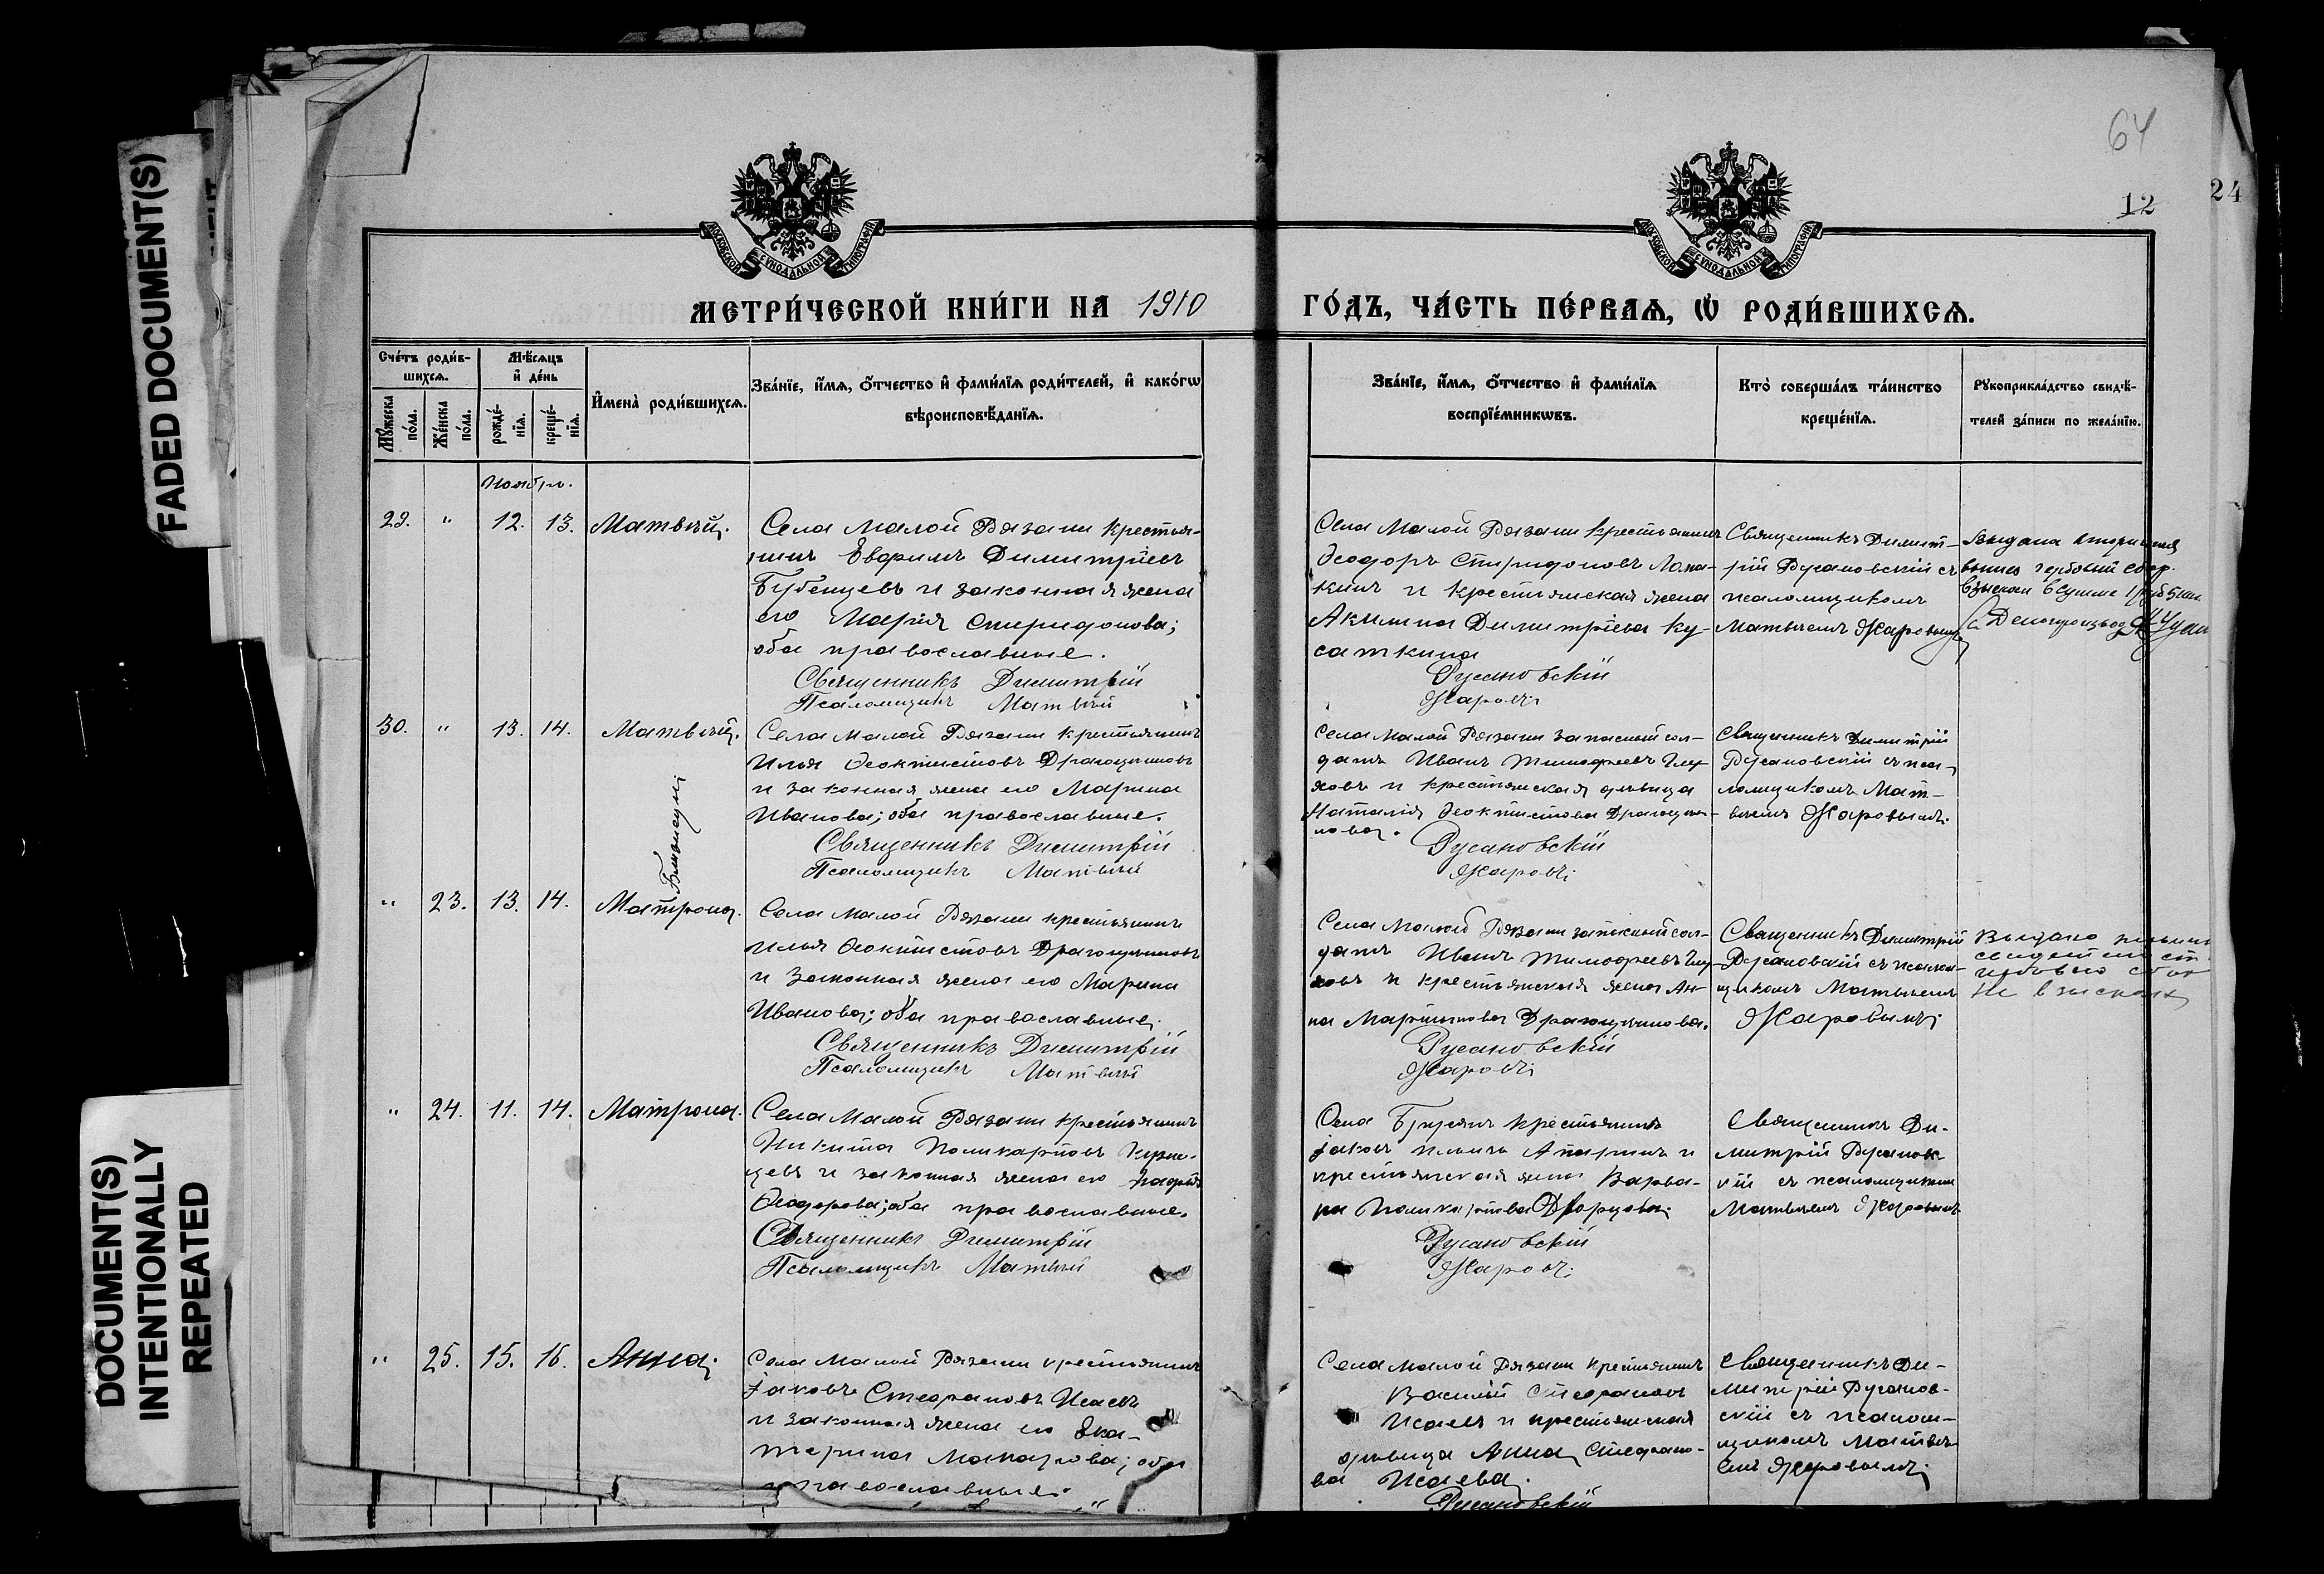 FADED DOCUMENT(S)
DOCUMENT(S)
INTENTIONALLY
REPEATED
64
12
24
МОСКОВСКОЙ СѴНОДАЛЬНОЙ ТИПОГРАФІИ
МОСКОВСКОЙ СѴНОДАЛЬНОЙ ТИПОГРАФІИ
МЕТРИ́ЧЕСКОЙ КНИ́ГИ НА 1910 ГО́ДЪ, ЧА́СТЬ ПЕ́РВАѦ, Ѽ РОДИ́ВШИХСѦ.
Сче́тъ роди́в-
шихсѧ.
Мѣ́сѧцъ
и҆ де́нь
Мꙋ́жеска
по́ла.
Же́нска
по́ла.
рожде́-
нїѧ.
креще́-
нїѧ.
И҆мена̀ роди́вшихсѧ.
Зва́нїе, и҆́мѧ, ѻ҆́тчество и҆ фами́лїѧ роди́телей, и҆ како́гѡ
вѣроисповѣ́данїѧ.
Зва́нїе, и҆́мѧ, ѻ҆́тчество и҆ фами́лїѧ
воспрїе́мникѡвъ.
Кто̀ соверша́лъ та́инство
креще́нїѧ.
Рꙋкоприкла́дство свидѣ́-
телей за́писи по жела́нїю.
Ноября.
29. " 12. 13. Матвѣй.
Села Малой Рязани крестья-
нинъ Евѳимъ Димитріевъ
Бубенцевъ и законная жена
его Марія Спиридонова;
оба православные.
Священникъ Димитрій
Псаломщикъ Матвѣй
Села Малой Рязани крестьянинъ
Ѳеодоръ Спиридоновъ Лапа-
кинъ и крестьянская жена
Акилина Димитріева Ку-
саткина
Русановскій
Жаровъ
Священникъ Димит-
рій Русановскій съ
псаломщикомъ
Матвѣемъ Жаровымъ
Выдана
выпис гербовый сбор
взыскан в сумме
Делопроизвод
30. " 13. 14. Матвѣй.
Близнецы
Села Малой Рязани крестьянинъ
Илья Ѳеоктистовъ Драгоцѣнновъ
и законная жена его Марина
Иванова; оба православные.
Священникъ Димитрій
Псаломщикъ Матвѣй
Села Малой Рязани запасный сол-
датъ Иванъ Тимоѳеевъ Глу-
ховъ и крестьянская дѣвица
Наталія Ѳеоктистова Драгоцѣн-
нова.
Русановскій
Жаровъ
Священникъ Димитрій
Русановскій съ пса-
ломщикомъ Мат-
вѣемъ Жаровымъ.
" 23. 13. 14. Матрона.
Села Малой Рязани крестьянинъ
Илья Ѳеоктистовъ Драгоцѣнновъ
и законная жена его Марина
Иванова; оба православные
Священникъ Димитрій
Псаломщикъ Матвѣй
Села Малой Рязани запасный сол-
датъ Иванъ Тимоѳеевъ Глу-
ховъ и крестьянская жена Ан-
на Мартинова Драгоцѣннова.
Русановскій
Жаровъ
Священникъ Димитрій
Русановскій съ псалом-
щикомъ Матвѣемъ
Жаровымъ
Выдано
гербовый сбор
не взыскан
" 24. 11. 14. Матрона.
Села Малой Рязани крестьянинъ
Никита Поликарповъ Кузне-
цевъ и законная жена его
Ѳеодорова; оба православные.
Священникъ Димитрій
Псаломщикъ Матвѣй
Села крестьянинъ
Іаковъ Ильинъ и
крестьянская жена Варва-
ра Поликарпова
Русановскій
Жаровъ
Священникъ Ди-
митрій Русановс-
кій съ псаломщикомъ
Матвѣемъ Жаровымъ
" 25. 15. 16. Анна.
Села Малой Рязани крестьянинъ
Іаковъ Стефановъ Исаевъ
и законная жена его Ека-
терина Макарова; оба
православные.
Села Малой Рязани крестьянинъ
Василій Стефановъ
Исаевъ и крестьянская
дѣвица Анна Стефано-
ва Исаева.
Русановскій
Священникъ Ди-
митрій Русанов-
скій съ псалом-
щикомъ Матвѣ-
емъ Жаровымъ